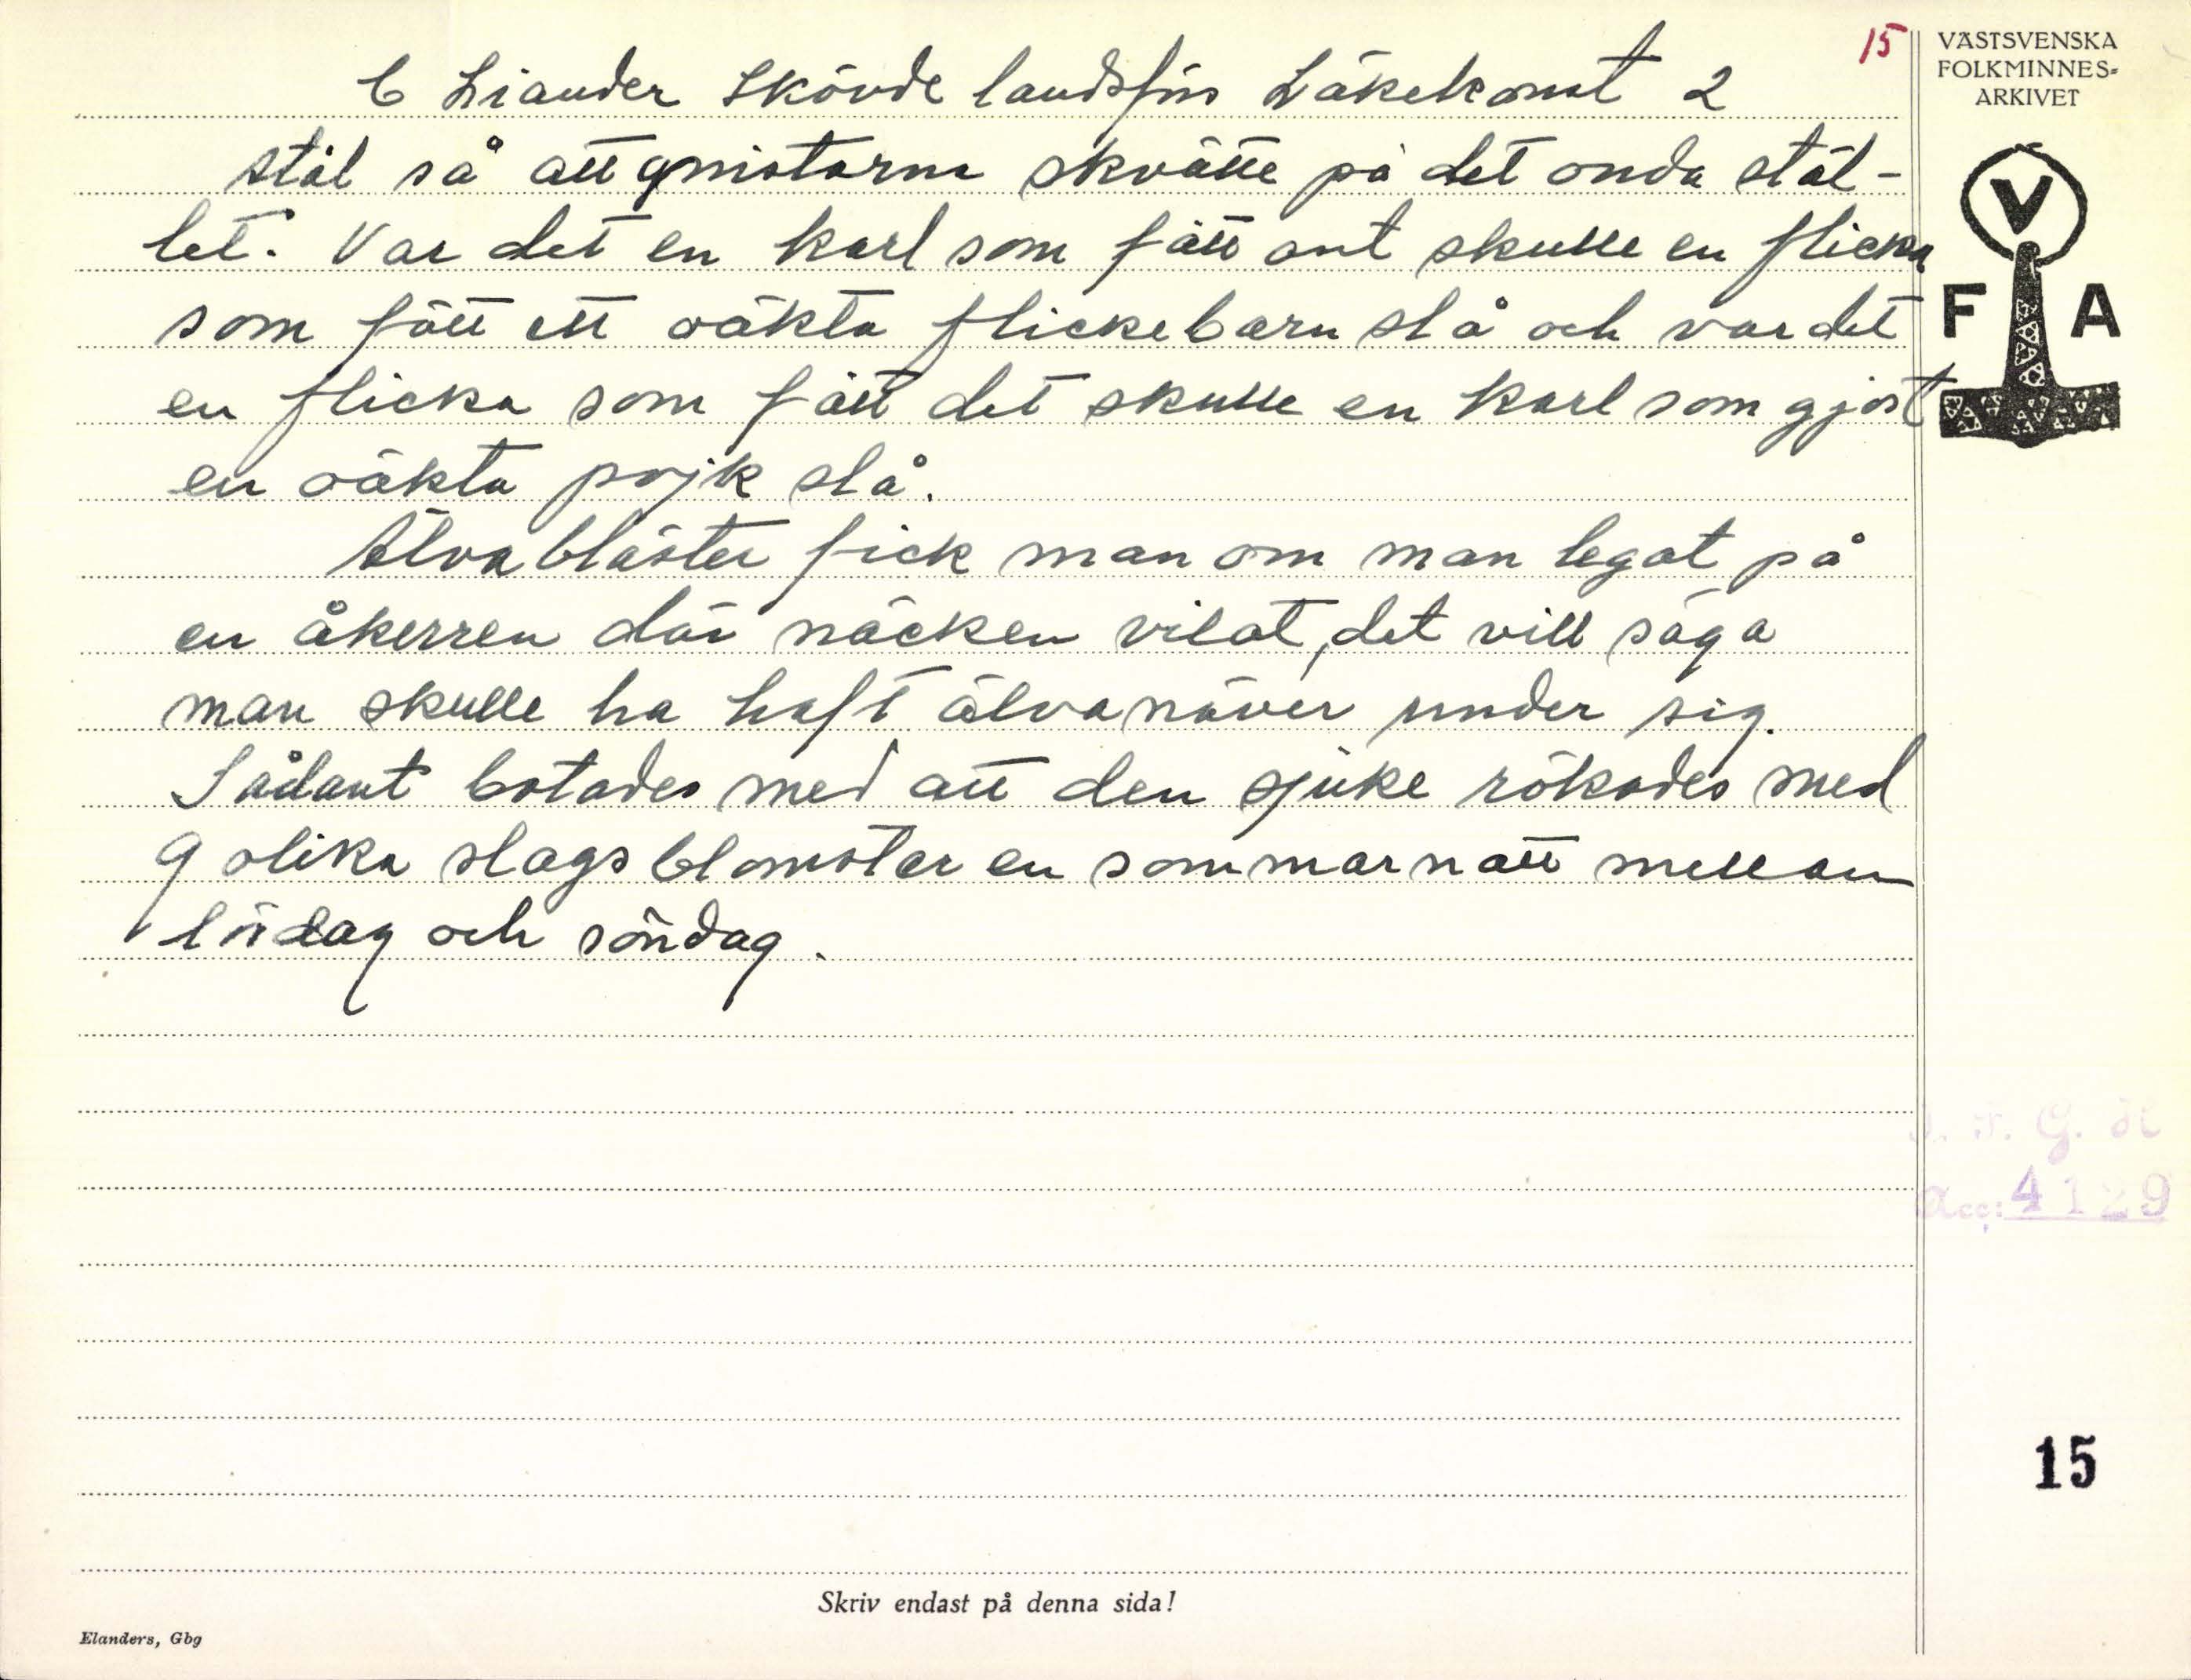 15
VÄSTSVENSKA
FOLKMINNES-
ARKIVET
C Liander Skövde landsförs Läkekonst 2
stål så att gnistorna skvätte på det onda stäl-
let. Var det en karl som fått ont skulle en flicka
som fått ett oäkta flickebarn slå och var det
en flicka som fått det skulle en karl som gjort
en oäkta pojk slå.
Älvabläster fick man om man legat på
en åkerren där näcken vilat, det vill säga
man skulle ha haft älvanäver under sig.
Sådant botades med att den sjuke rökades med
9 olika slags blomster en sommarnatt mellan
lördag och söndag.
V
F A
Acc: 4129
15
Skriv endast på denna sida!
Elanders, Gbg